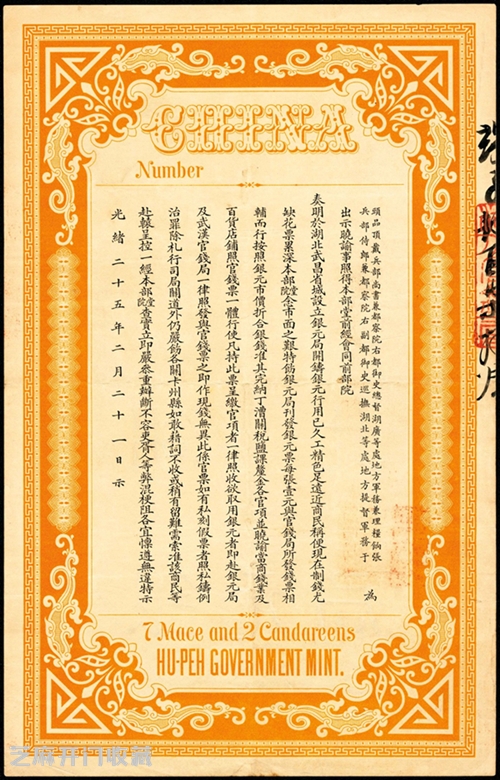 CHINA
Number
頭品頂戴兵部尚書兼都察院右都御史總督湖廣等處地方軍務兼理糧餉張
兵部侍郎兼都察院右副都御史巡撫湖北等處地方提督軍務于
為
出示曉諭事照得本部堂前經會同前部院
奏明於湖北武昌省城設立銀元局開鑄銀元行用已久工精色足遠近商民稱便現在制錢尤
缺花票累深本部堂院念市面之艱特飭銀元局刊發銀元票每張壹元與官錢局所發錢票相
輔而行按照銀元市價折合銀錢准其完納丁漕關稅鹽課釐金各官項並曉諭當商錢業及
百貨店鋪照官錢票一體行使凡持此票呈繳官項者一律照收欲取用銀元者即赴銀元局
及武漢官錢局一律照發與官錢票之即作現錢無異此係官票如有私刻假票者照私鑄例
治罪除札行司局關道外仍嚴飭各關卡州縣如敢藉詞不收或稍有留難需索准該商民等
赴轅呈控一經本部堂院查實立即嚴參重辦斷不容吏胥人等弊混梗阻各宜懍遵無違特示
光緒二十五年二月二十一日示
7 Mace and 2 Candareens
HU-PEH GOVERNMENT MINT.
芝麻开门收藏